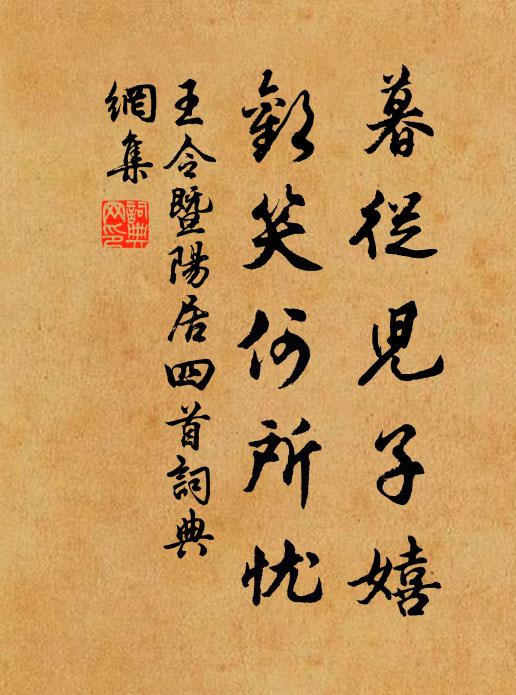 暮從兒子嬉
歡笑何所忧
王令暨陽居四首詞典
網集
詞典
网印